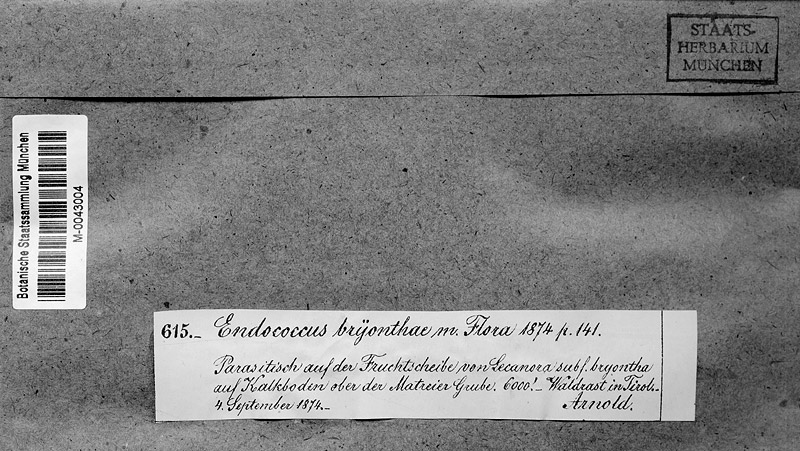 STAATS-
HERBARIUM
MÜNCHEN
Botanische Staatssammlung München
M-0043004
615._ Endococcus brÿonthae, m. Flora 1874 p. 141.
Parasitisch auf der Fruchtscheibe von Lecanora subf. bryontha
auf Kalkboden ober der Matreier Grube. 6000!_ Waldrast in Tirol._
4. September 1874._ Arnold.